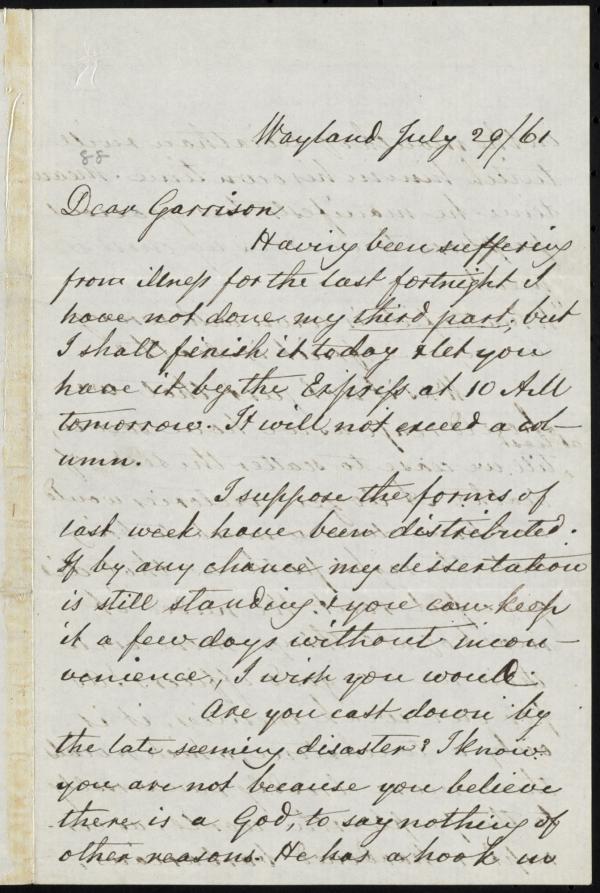 Wayland July 29/61
88
Dear Garrison
Having been suffering
from illness for the last fortnight I
have not done my third part, but
I shall finish it today & let you
have it by the Express at 10 AM
tomorrow. It will not exceed a col-
umn.
I suppose the forms of
last week have been distributed.
If by any chance my dissertation
is still standing & you can keep
it a few days without incon-
venience, I wish you would.
Are you cast down by
the late seeming disaster? I know
you are not because you believe
there is a God, to say nothing of
other reasons. He has a hook in